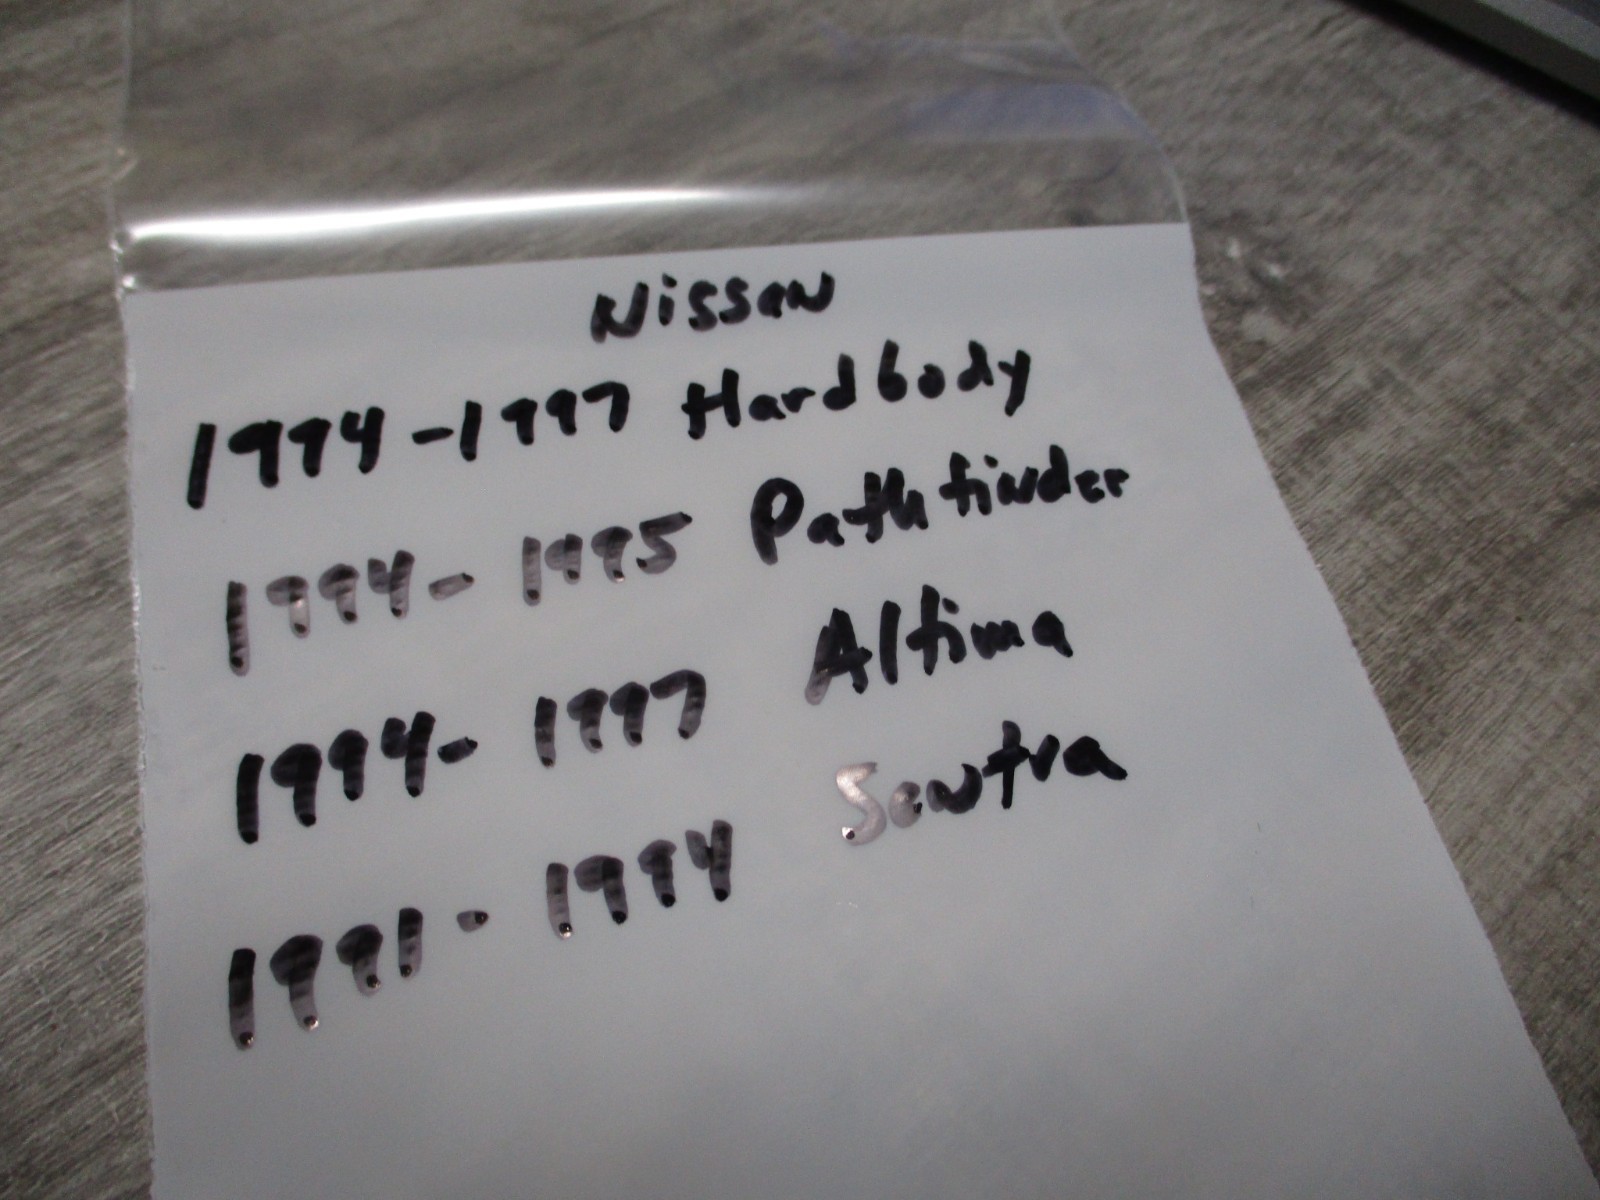 Nissan
1994-1997 Hardbody
1994-1995 Pathfinder
1994-1997 Altima
1991-1994 Sentra